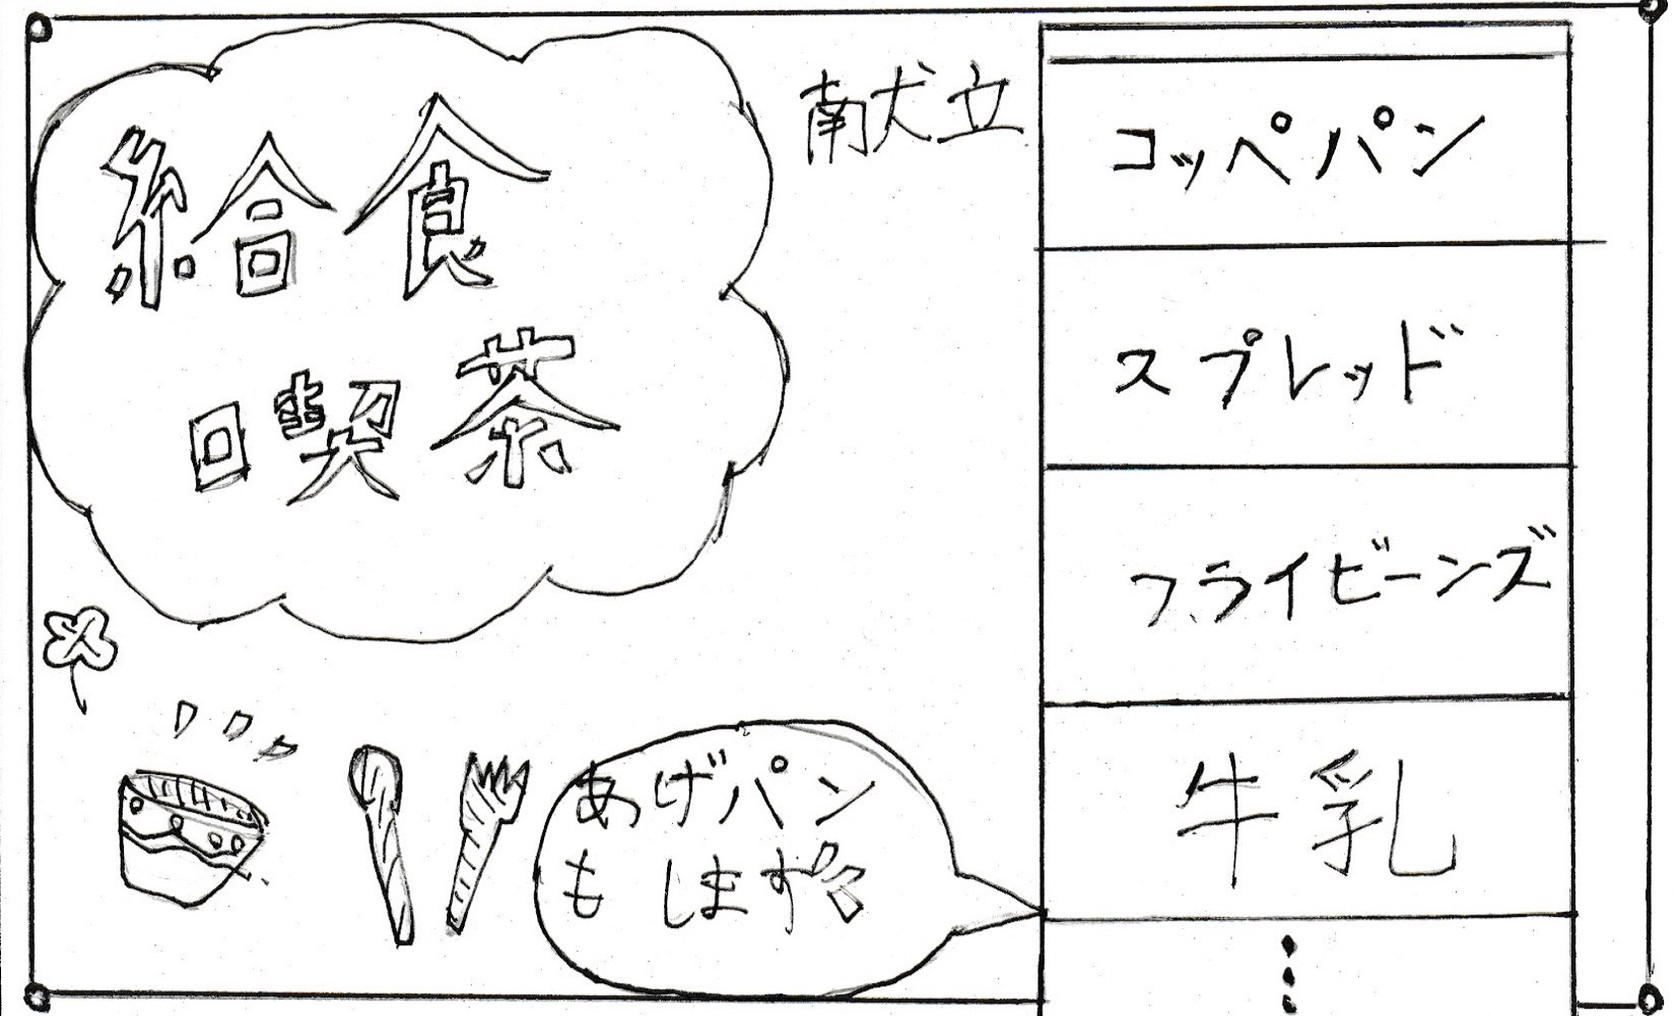 給食
喫茶
献立
コッペパン
スプレッド
フライビーンズ
牛乳
あげパン
もします